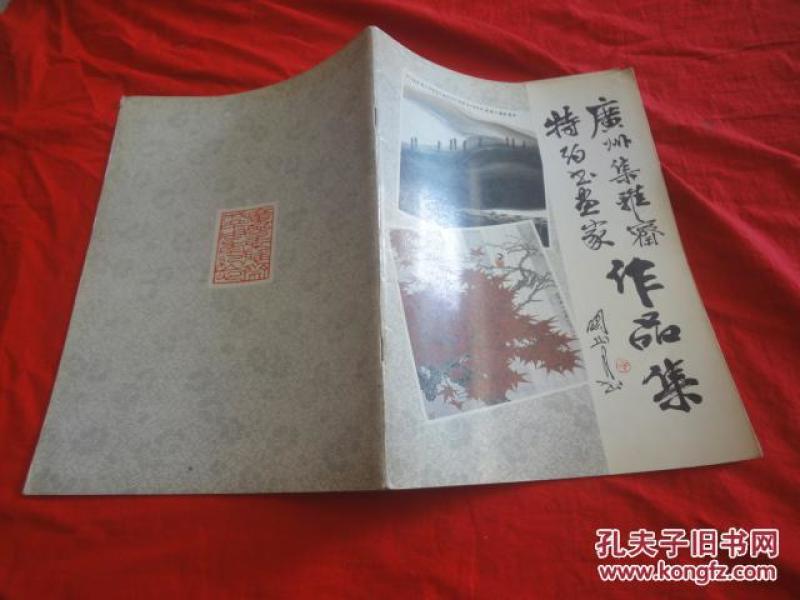 廣州集雅齋
特约书画家
作品集
關山月
孔夫子旧书网
www.kongfz.com